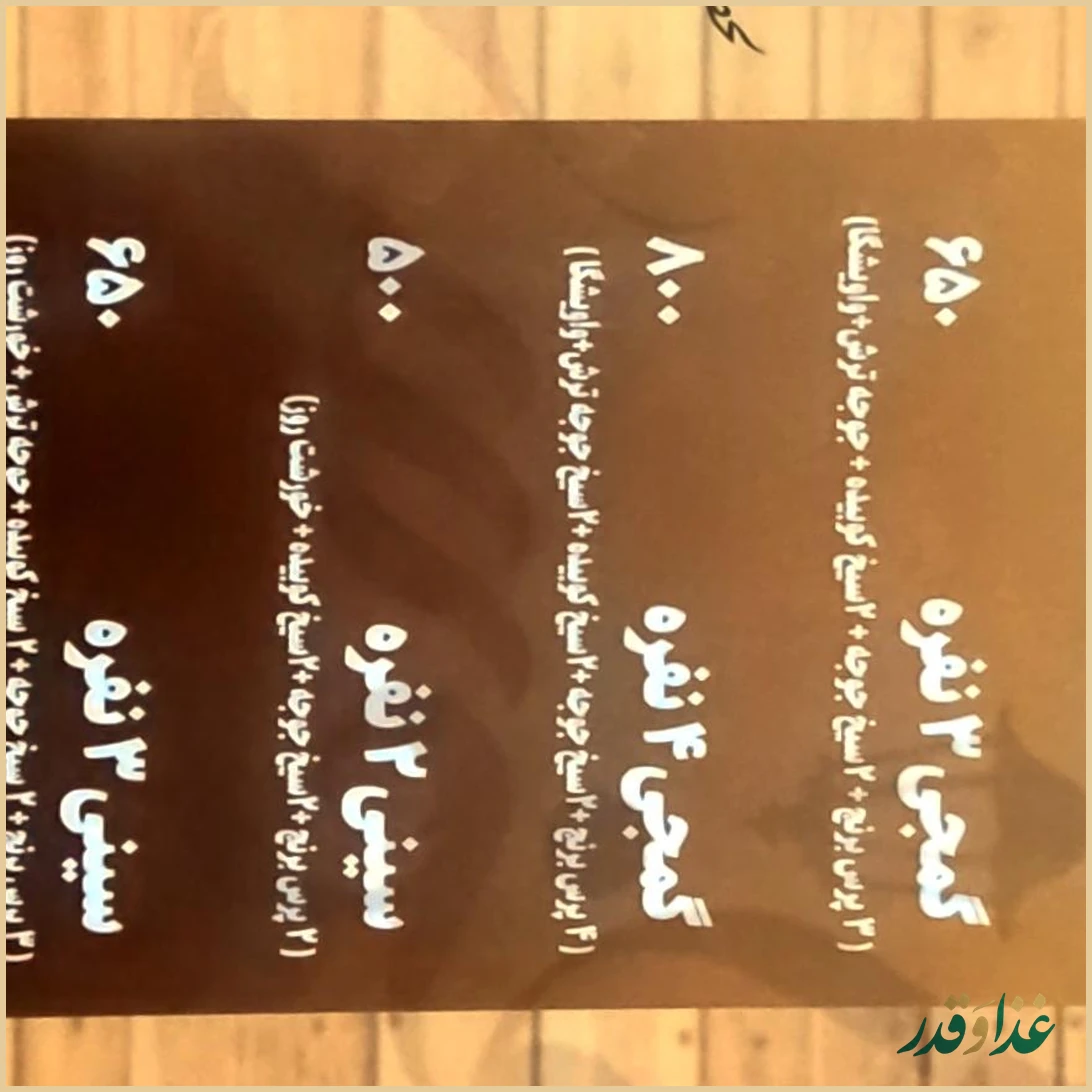 گمجی ۳ نفره ۶۵۰
(۳ پرس برنج + ۲سیخ جوجه + ۲سیخ کوبیده + جوجه ترش+واویشگا)
گمجی ۴ نفره ۸۰۰
(۴ پرس برنج +۲سیخ جوجه +۲سیخ کوبیده +۲سیخ جوجه ترش+واویشگا)
سینی ۲ نفره ۵۰۰
(۲ پرس برنج +۲سیخ جوجه +۲سیخ کوبیده + خورشت روز)
سینی ۳ نفره ۶۵۰
(۳ پرس برنج + ۲ سیخ جوجه + ۲ سیخ کوبیده + جوجه ترش + خورشت روز)
غذا و قدر